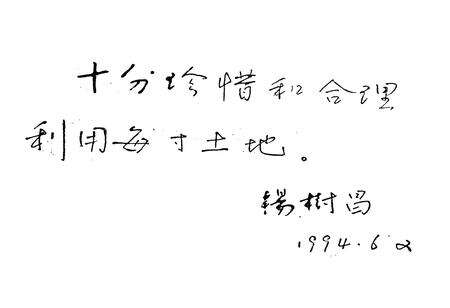 十分珍惜和合理
利用每寸土地。
樹
1994.6